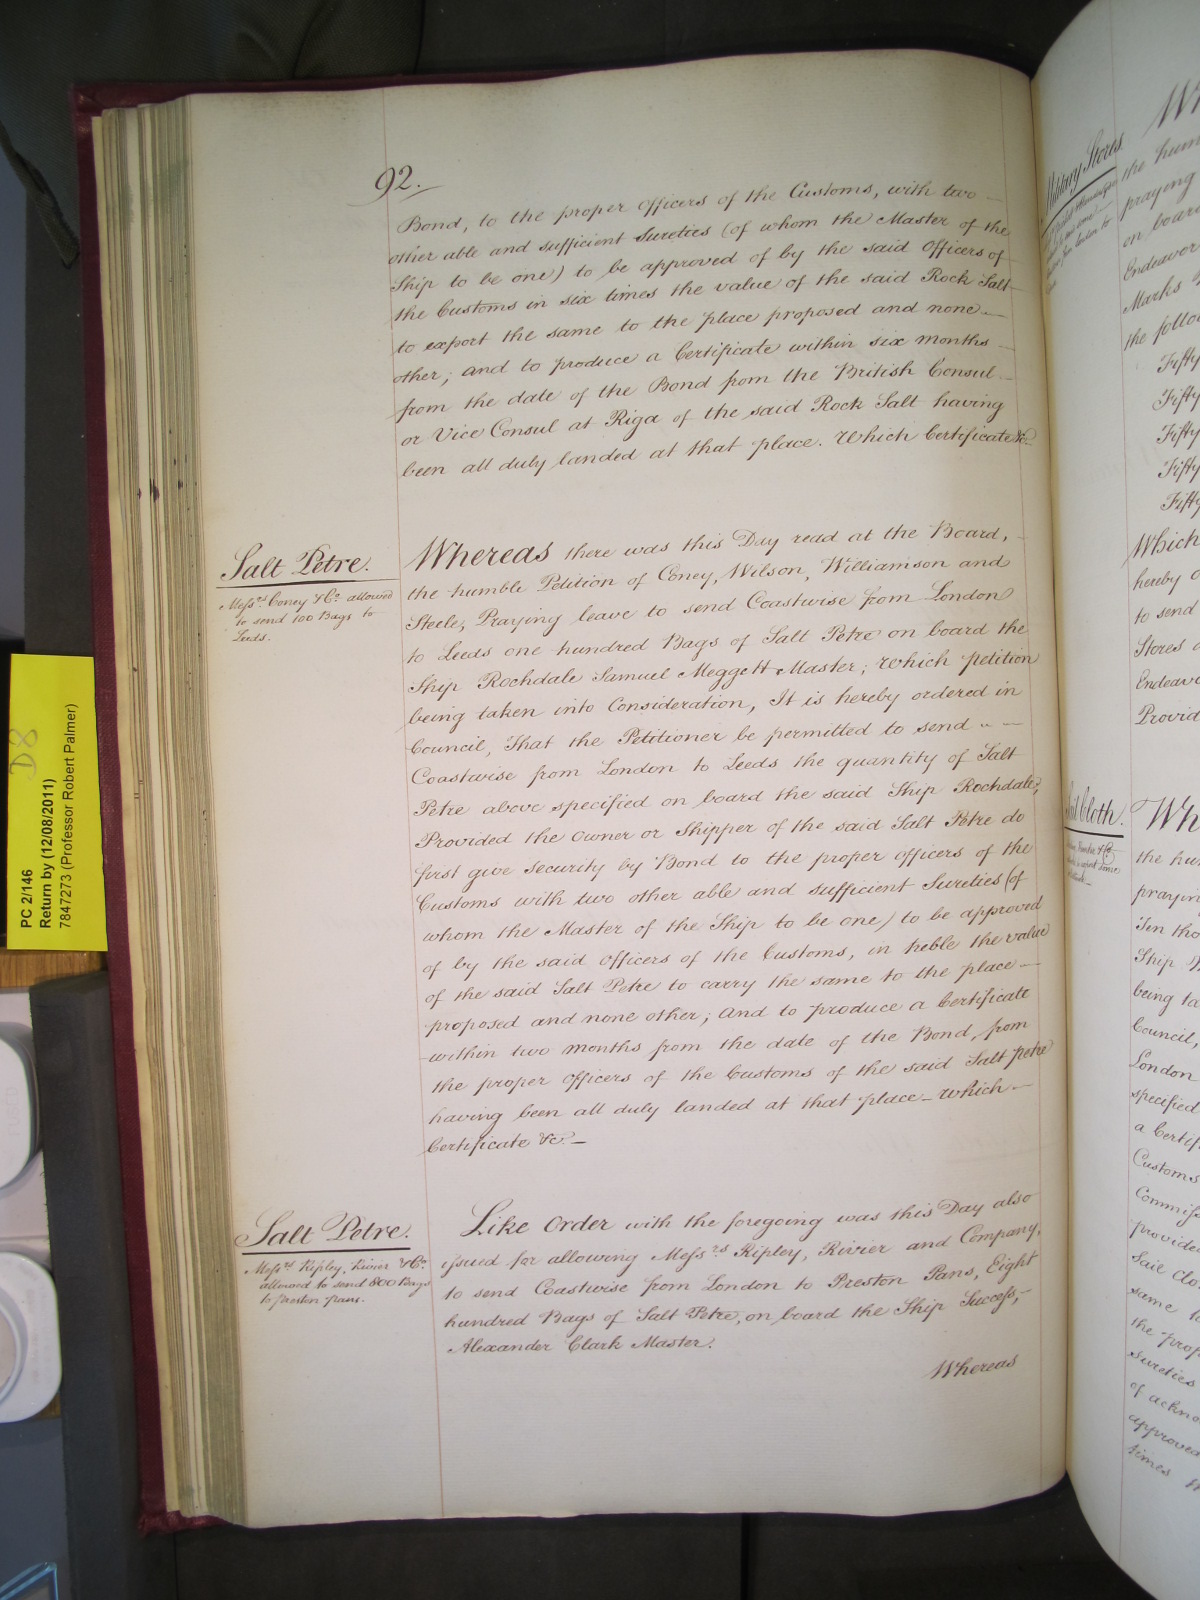 92.
Bond, to the proper Officers of the Customs, with two
other able and sufficient Sureties (of whom the Master of the
Ship to be one) to be approved of by the said Officers of
the Customs in six times the value of the said Rock Salt
to export the same to the place proposed and none
other; and to produce a Certificate within six months
from the date of the Bond from the British Consul
or Vice Consul at Riga of the said Rock Salt having
been all duly landed at that place. Which Certificate &c.
Salt Petre.
Messrs. Coney & Co. allowed
to send 100 Bags to
Leeds.
Whereas there was this Day read at the Board,
the humble Petition of Coney, Wilson, Williamson and
Steele, Praying leave to send Coastwise from London
to Leeds one hundred Bags of Salt Petre on board the
Ship Rochdale Samuel Meggett Master; Which petition
being taken into Consideration, It is hereby ordered in
Council, That the Petitioner be permitted to send
Coastwise from London to Leeds the quantity of Salt
Petre above specified on board the said Ship Rochdale;
Provided the Owner or Shipper of the said Salt Petre do
first give security by Bond to the proper Officers of the
Customs with two other able and sufficient Sureties (of
whom the Master of the Ship to be one) to be approved
of by the said Officers of the Customs, in treble the value
of the said Salt Petre to carry the same to the place
proposed and none other; and to produce a Certificate
within two months from the date of the Bond, from
the proper Officers of the Customs of the said Salt petre
having been all duly landed at that place – Which
Certificate &c. –
Salt Petre.
Messrs. Ripley, Rivier & Co.
allowed to send 800 Bags
to Preston pans.
Like Order with the foregoing was this Day also
issued for allowing Messrs Ripley, Rivier and Company,
to send Coastwise from London to Preston Pans, Eight
hundred Bags of Salt Petre, on board the Ship Success,
Alexander Clark Master.
Whereas
Military Stores
the hum
praying
on board
Endeavor
Marks
the follo
Fifty
Fifty
Fifty
Fifty
Fifty
Which
hereby o
to send
Stores
Endeavo
Provid
Sail Cloth.
Wh
the hu
prayin
Ten tho
Ship
being ta
Council,
London
specified
a Certif
Customs
Commiss
provided
Sail Clo
same to
the prop
sureties
of ackno
approved
times
PC 2/146
Return by (12/08/2011)
7847273 (Professor Robert Palmer)
D8